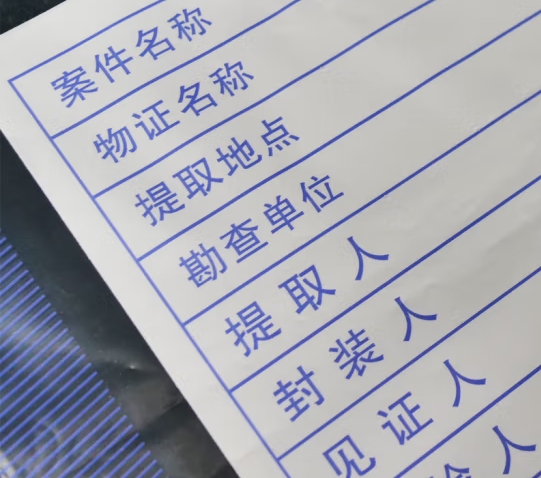 案件名称
物证名称
提取地点
勘查单位
提取人
封装人
见证人